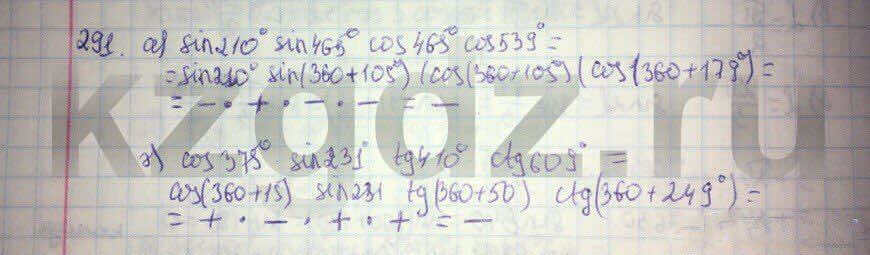 291. а) sin210° sin465° cos465° cos539° =
= sin210° sin(360+105°) (cos(360+105°) (cos(360+179°) =
= − · + · − · − = −
г) cos375° sin231° tg410° ctg609° =
cos(360+15) sin231 tg(360+50) ctg(360+249°) =
= + · − · + · + = −
kzgdz.ru